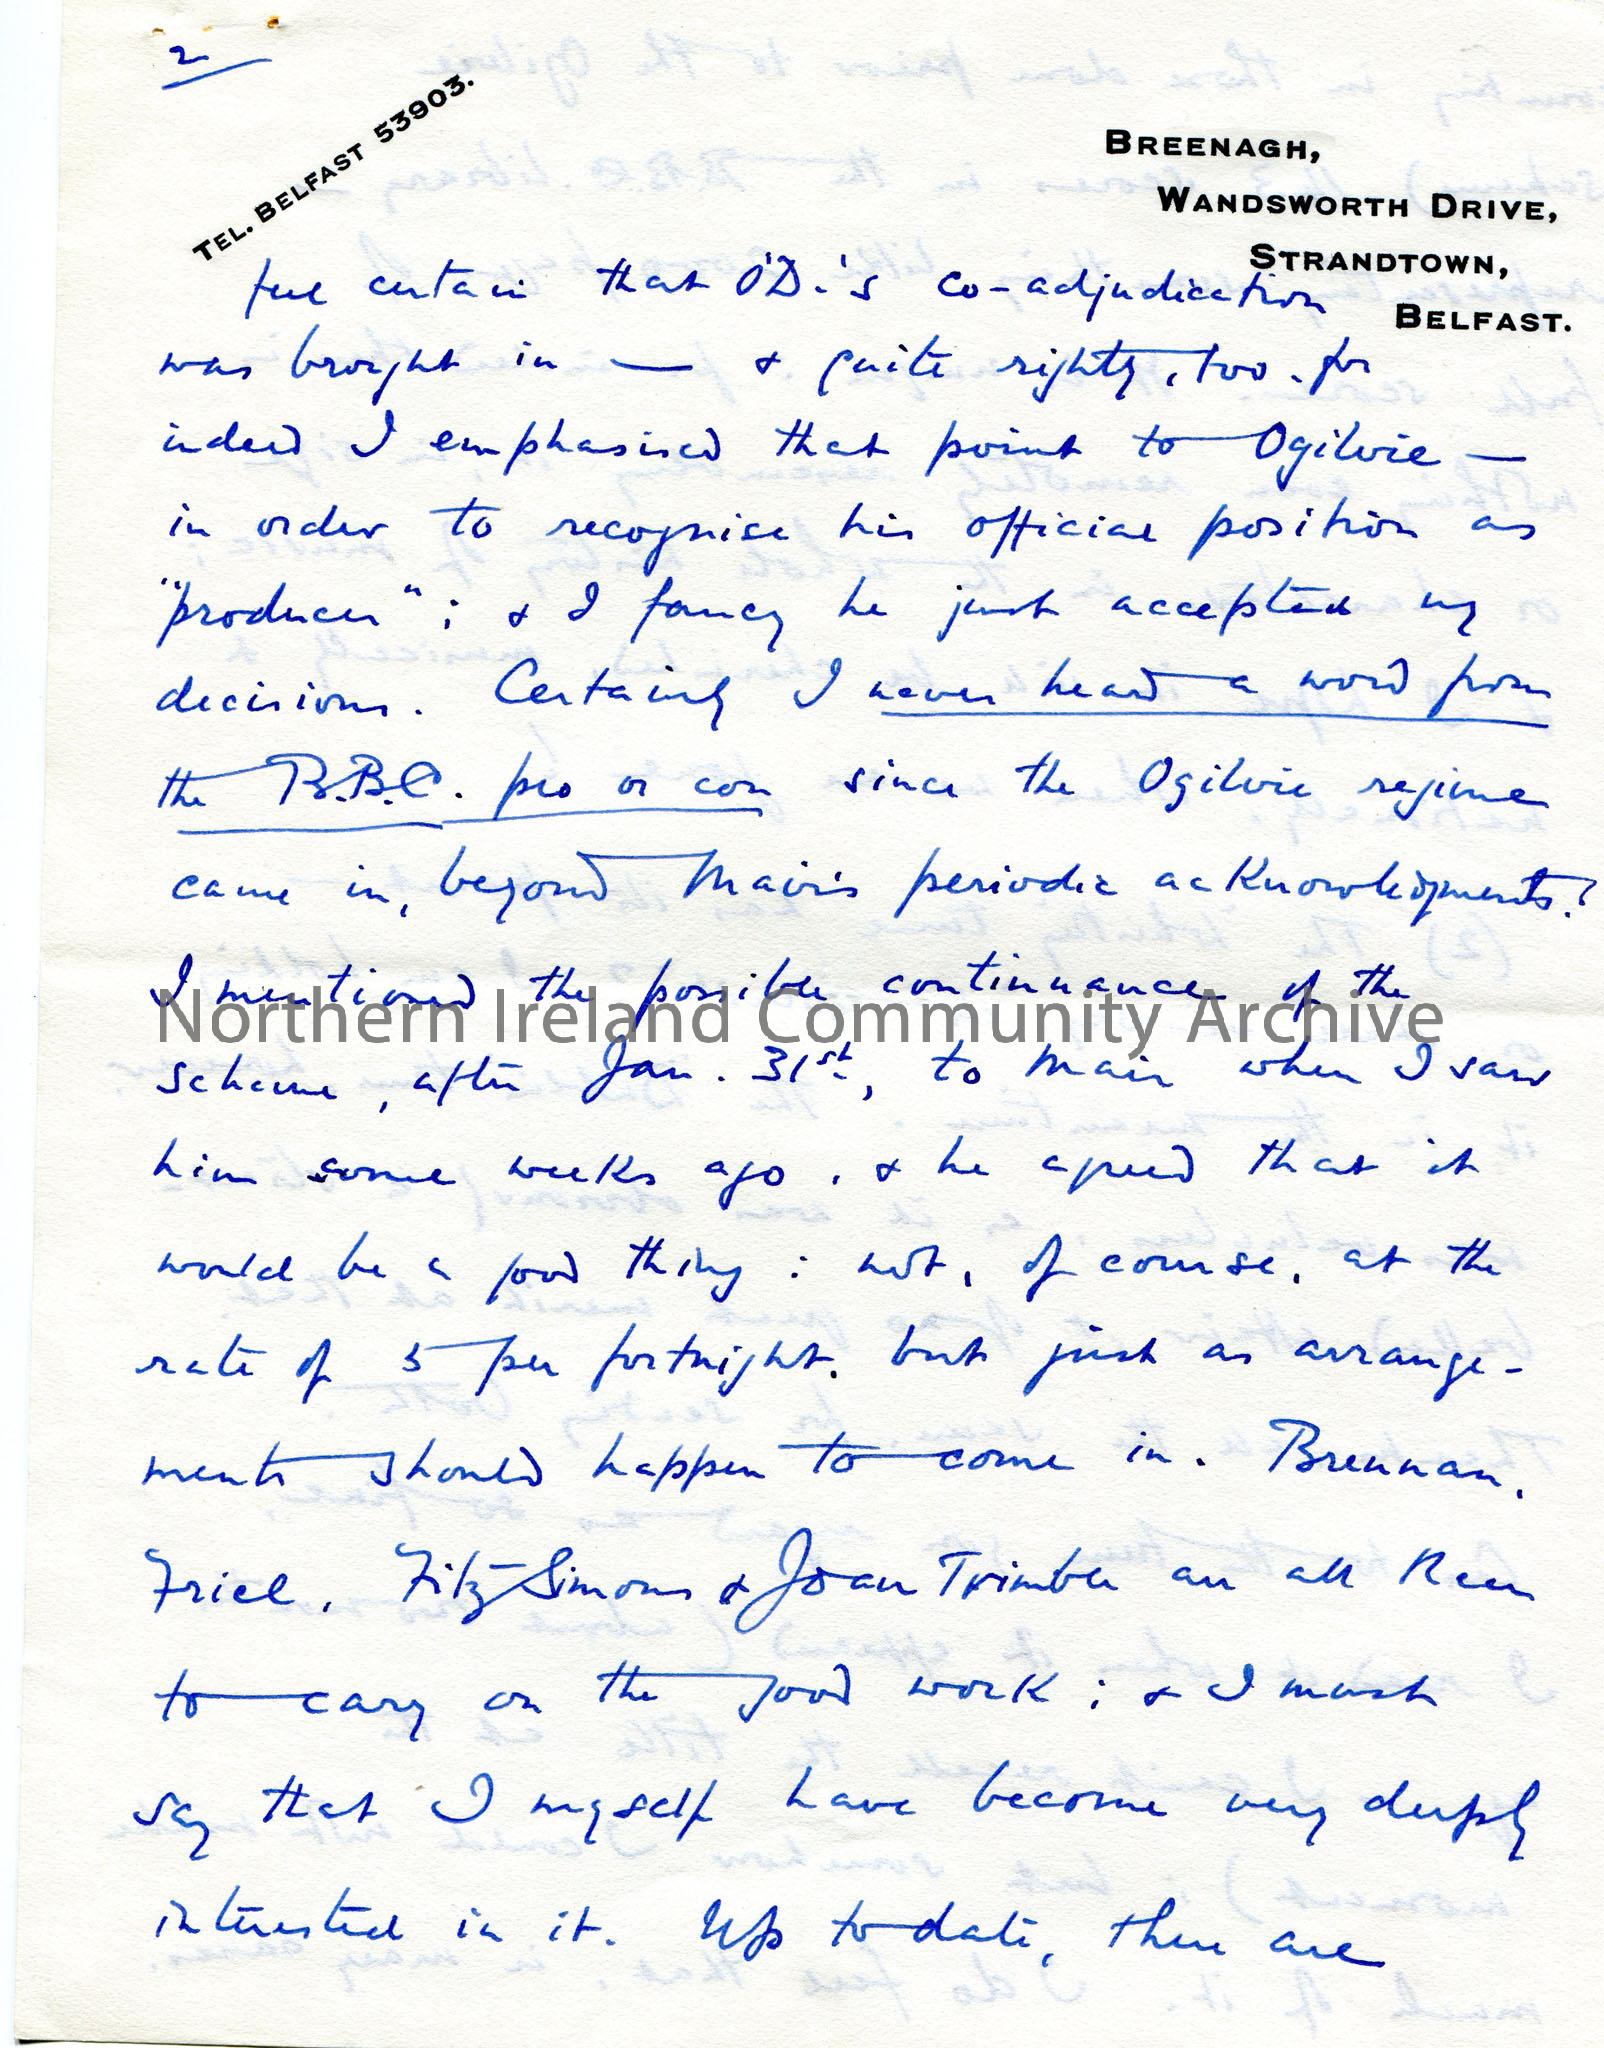 2
TEL. BELFAST 53903.
BREENAGH,
WANDSWORTH DRIVE,
STRANDTOWN,
BELFAST.
feel certain that O'D.'s co-adjudication
was brought in — & quite rightly, too, for
indeed I emphasised that point to Ogilvie —
in order to recognise his official position as
"producer"; & I fancy he just accepted my
decisions. Certainly I never heard a word from
the B.B.C. pro or con since the Ogilvie regime
came in, beyond Mair's periodic acknowledgments!
I mentioned the possible continuance of the
Northern Ireland Community Archive
scheme, after Jan. 31st, to Mair when I saw
him some weeks ago, & he agreed that it
would be a good thing: not, of course, at the
rate of 5 per fortnight, but just as arrange-
ments should happen to come in. Brennan,
Friel, FitzSimons & Joan Trimble are all keen
to carry on the good work; & I must
say that I myself have become very deeply
interested in it. Up to date, there are